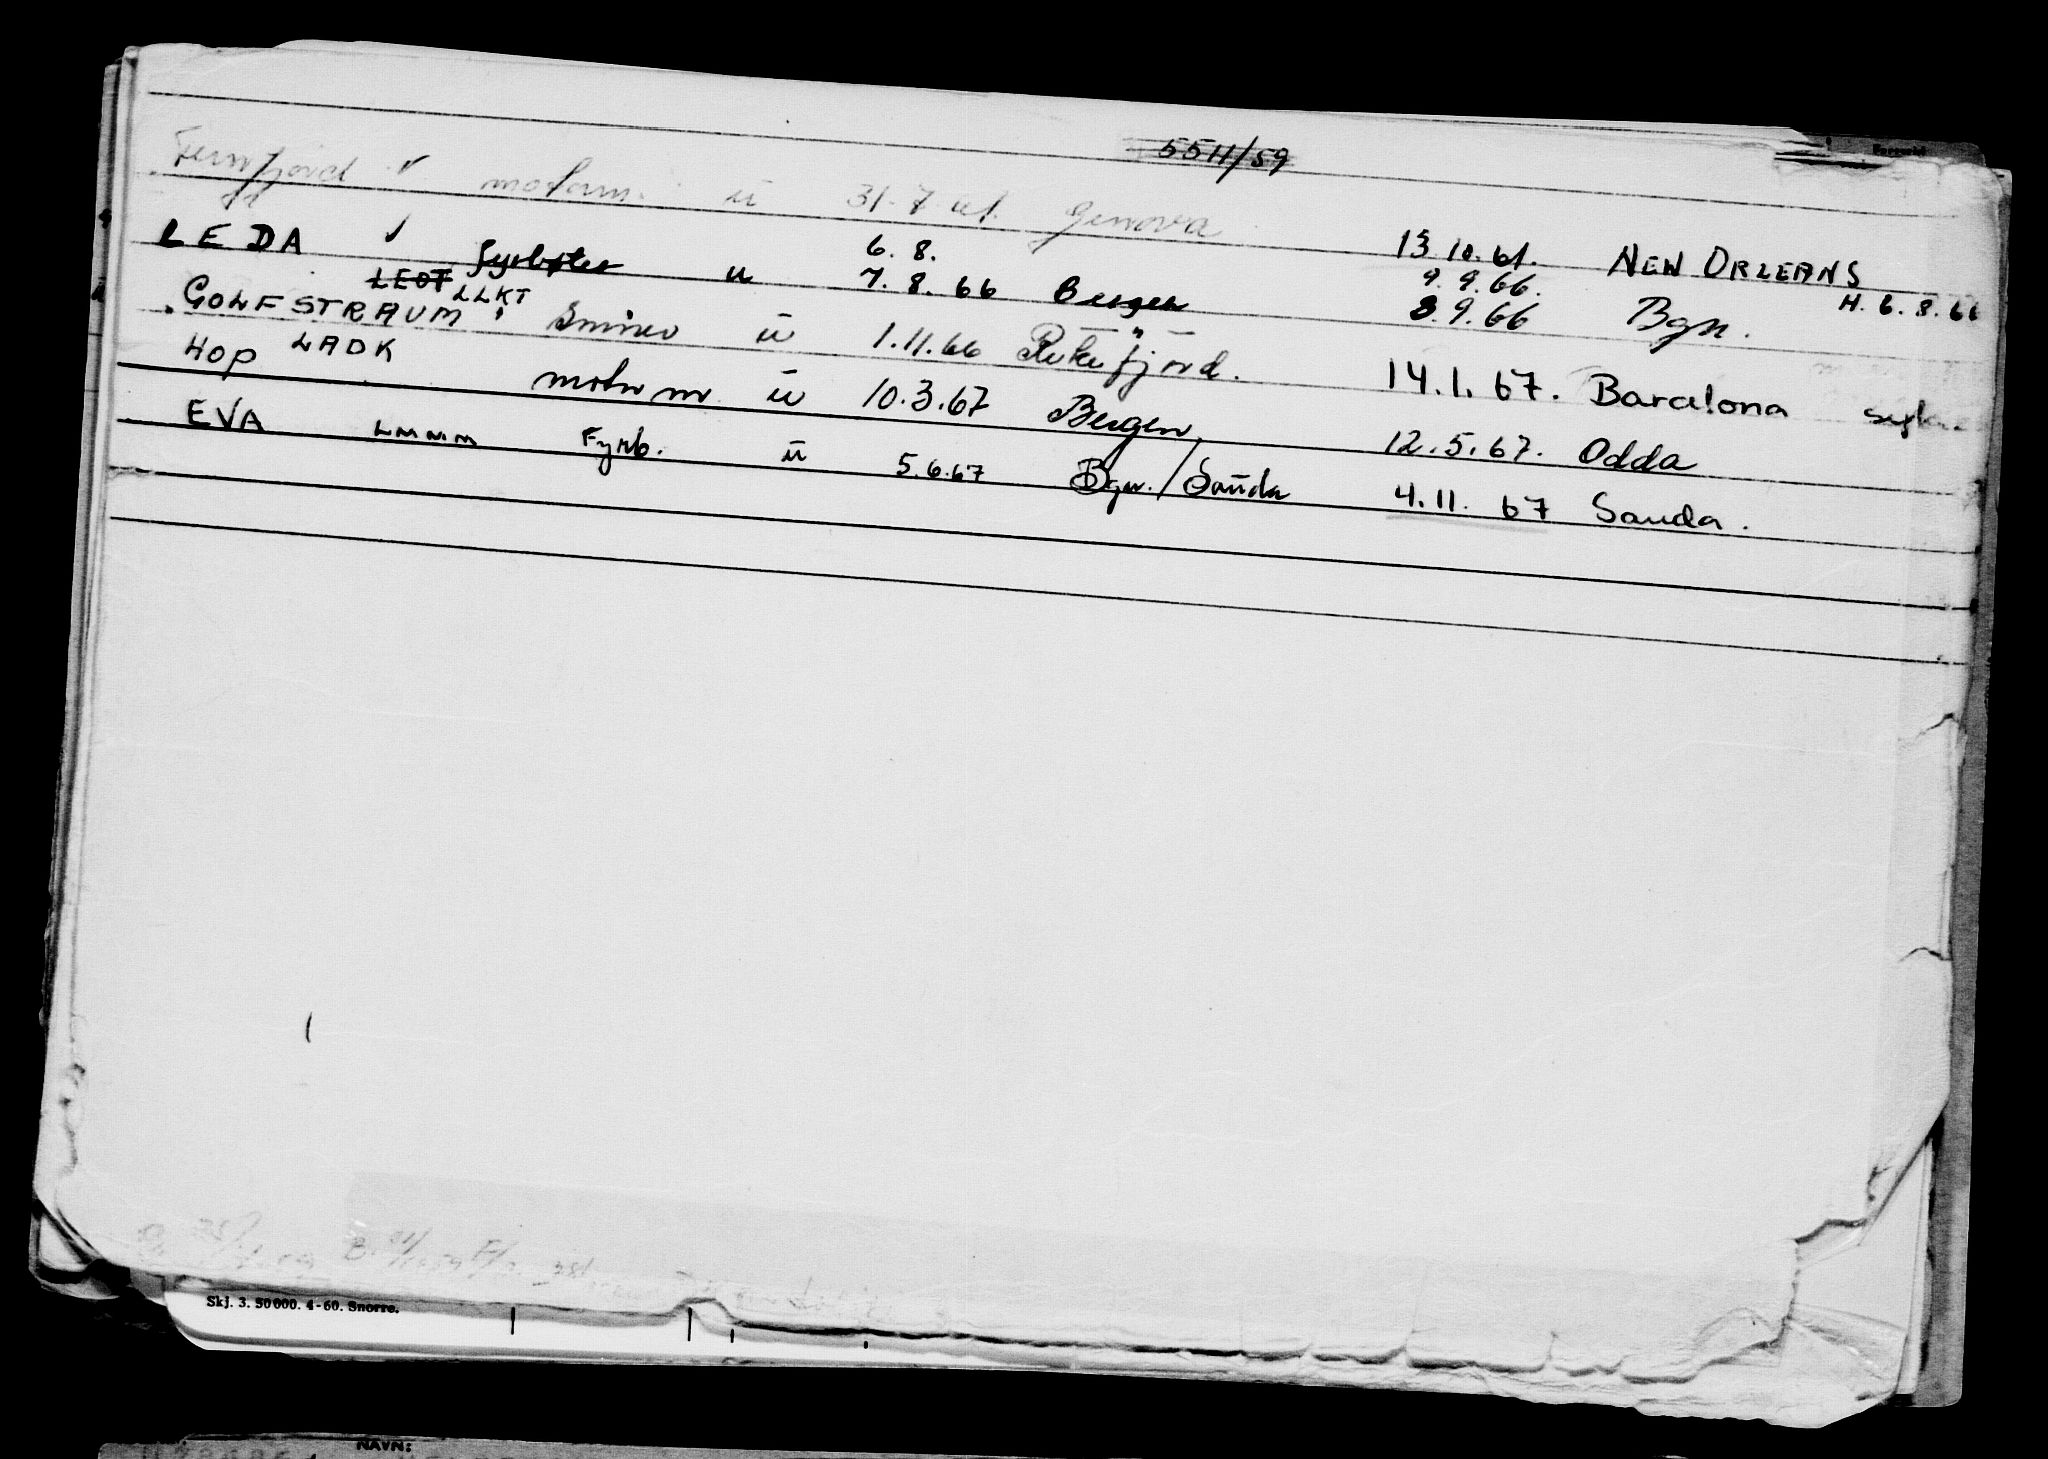 5511/59
Fernfjord ✓ motorm. u 31.7.61. Genova 13.10.61. NEW ORLEANS
LEDA ✓ fyrbøter u 6.8. 7.8.66 Bergen 9.9.66. 8.9.66 Bgn. H. 6.8.66
LEOT LLKT
GOLFSTRAUM Smører u 1.11.66 Rekefjord. 14.1.67. Barcelona
HOP LADK motorm u 10.3.67 Bergen, 12.5.67. Odda
EVA LMMM Fyrb. u 5.6.67 Bgn./Sauda 4.11.67 Sauda.
Skj. 3. 50 000. 4-60. Snorre.
NAVN: